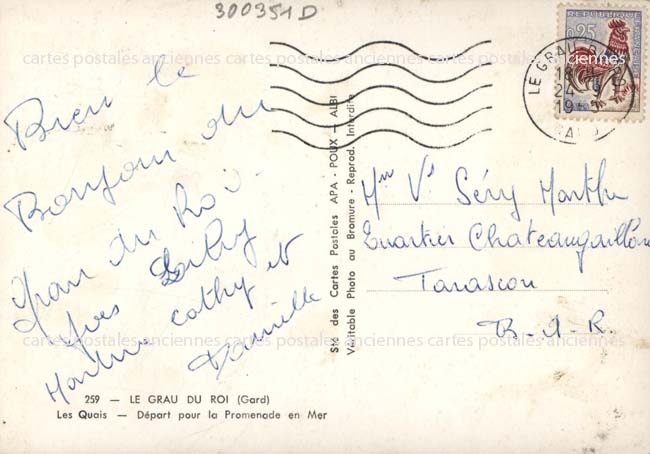 300351 D
REPUBLIQUE FRANCAISE
0,25
LE GRAU D
24
19
GARD
cartes postales anciennes cartes postales anciennes cartes postales anciennes
Bien le
Bonjour du
Grau du Roi.
Yves Gilby
Marlène Cathy et
Danielle
Sté des Cartes Postales APA - POUX - ALBI
Véritable Photo au Bromure - Reprod. Interdite
Mme Vve Séry Marthe
Quartier Chateaugaillard
Tarascon
B-d-R.
cartes postales anciennes cartes postales anciennes cartes postales anciennes
259 — LE GRAU DU ROI (Gard)
Les Quais — Départ pour la Promenade en Mer